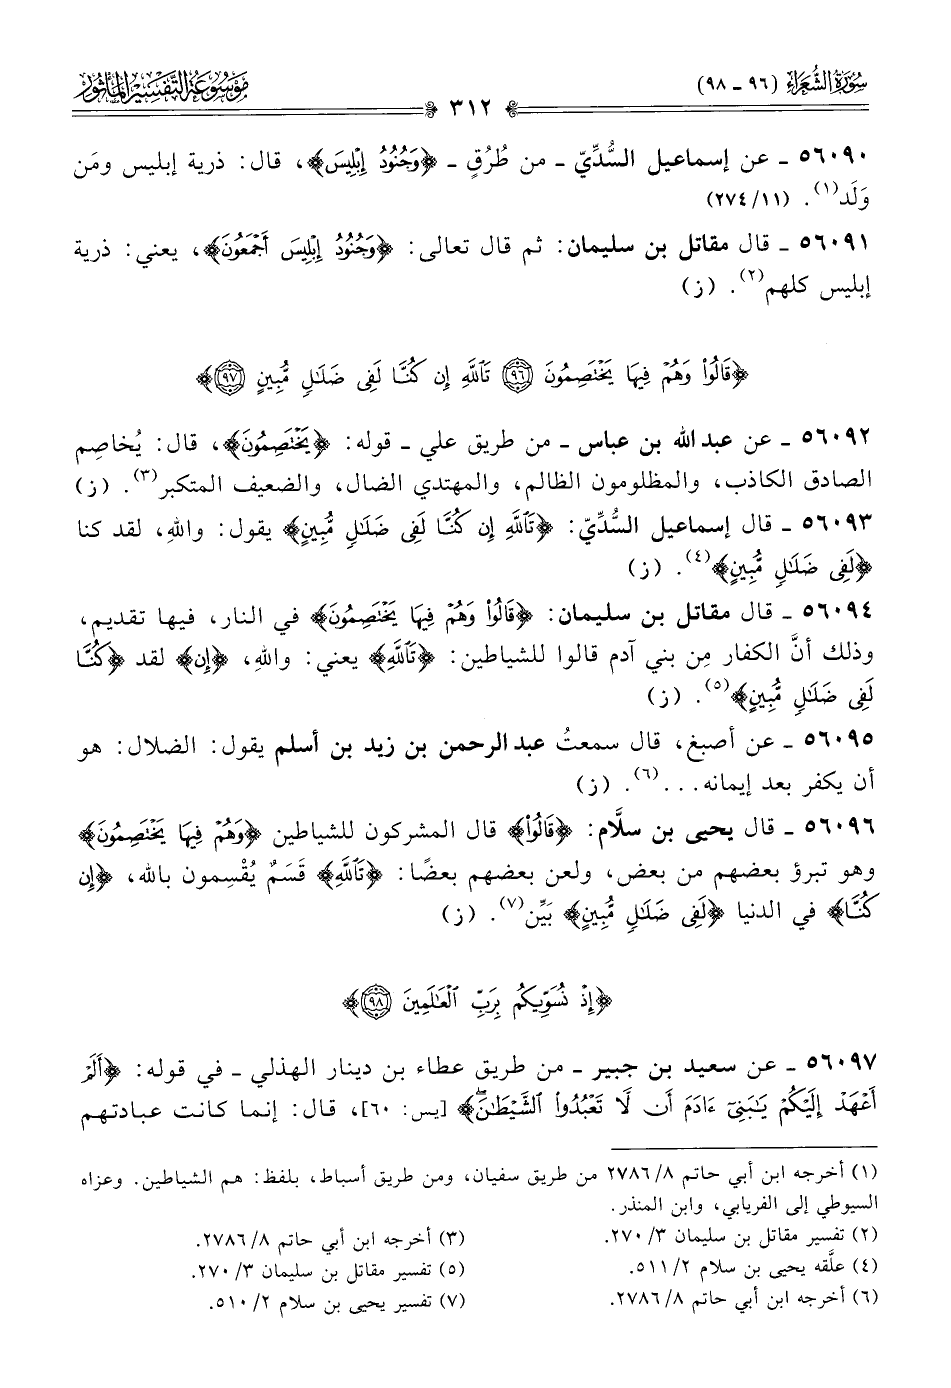 سُورَةُ الشُّعَرَاءِ (٩٦ - ٩٨)
٣١٢
مَوْسُوعَةُ التَّفْسِيرِ المَأْثُورِ
٥٦٠٩٠ - عن إسماعيل السُّدِّيّ - من طُرُقٍ - ﴿وَجُنُودُ إِبْلِيسَ﴾، قال: ذرية إبليس ومَن
وَلَد(١). (٢٧٤/١١)
٥٦٠٩١ - قال مقاتل بن سليمان: ثم قال تعالى: ﴿وَجُنُودُ إِبْلِيسَ أَجْمَعُونَ﴾، يعني: ذرية
إبليس كلهم(٢). (ز)
﴿قَالُوا۟ وَهُمْ فِيهَا يَخْتَصِمُونَ ٩٦ تَٱللَّهِ إِن كُنَّا لَفِى ضَلَـٰلٍ مُّبِينٍ ٩٧﴾
٥٦٠٩٢ - عن عبد الله بن عباس - من طريق علي - قوله: ﴿يَخْتَصِمُونَ﴾، قال: يُخاصِم
الصادق الكاذب، والمظلومون الظالم، والمهتدي الضال، والضعيف المتكبر(٣). (ز)
٥٦٠٩٣ - قال إسماعيل السُّدِّيّ: ﴿تَٱللَّهِ إِن كُنَّا لَفِى ضَلَـٰلٍ مُّبِينٍ﴾ يقول: واللهِ، لقد كنا
﴿لَفِى ضَلَـٰلٍ مُّبِينٍ﴾(٤). (ز)
٥٦٠٩٤ - قال مقاتل بن سليمان: ﴿قَالُوا۟ وَهُمْ فِيهَا يَخْتَصِمُونَ﴾ في النار، فيها تقديم،
وذلك أنَّ الكفار مِن بني آدم قالوا للشياطين: ﴿تَٱللَّهِ﴾ يعني: واللهِ، ﴿إِن﴾ لقد ﴿كُنَّا
لَفِى ضَلَـٰلٍ مُّبِينٍ﴾(٥). (ز)
٥٦٠٩٥ - عن أصبغ، قال سمعتُ عبد الرحمن بن زيد بن أسلم يقول: الضلال: هو
أن يكفر بعد إيمانه...(٦). (ز)
٥٦٠٩٦ - قال يحيى بن سلَّام: ﴿قَالُوا۟﴾ قال المشركون للشياطين ﴿وَهُمْ فِيهَا يَخْتَصِمُونَ﴾
وهو تبرؤ بعضهم من بعض، ولعن بعضهم بعضًا: ﴿تَٱللَّهِ﴾ قَسَمٌ يُقْسِمون بالله، ﴿إِن
كُنَّا﴾ في الدنيا ﴿لَفِى ضَلَـٰلٍ مُّبِينٍ﴾ بَيِّن(٧). (ز)
﴿إِذْ نُسَوِّيكُم بِرَبِّ ٱلْعَـٰلَمِينَ ٩٨﴾
٥٦٠٩٧ - عن سعيد بن جبير - من طريق عطاء بن دينار الهذلي - في قوله: ﴿أَلَمْ
أَعْهَدْ إِلَيْكُمْ يَـٰبَنِىٓ ءَادَمَ أَن لَّا تَعْبُدُوا۟ ٱلشَّيْطَـٰنَ﴾ [يس: ٦٠]، قال: إنما كانت عبادتهم
(١) أخرجه ابن أبي حاتم ٨/ ٢٧٨٦ من طريق سفيان، ومن طريق أسباط، بلفظ: هم الشياطين. وعزاه
السيوطي إلى الفريابي، وابن المنذر.
(٢) تفسير مقاتل بن سليمان ٣/ ٢٧٠. (٣) أخرجه ابن أبي حاتم ٨/ ٢٧٨٦.
(٤) علَّقه يحيى بن سلام ٢/ ٥١١. (٥) تفسير مقاتل بن سليمان ٣/ ٢٧٠.
(٦) أخرجه ابن أبي حاتم ٨/ ٢٧٨٦. (٧) تفسير يحيى بن سلام ٢/ ٥١٠.